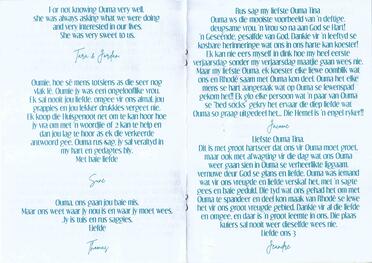 For not knowing Ouma very well,
she was always asking what we were doing
and very interested in our lives.
She was very sweet to us.
Tara & Jordan
Oumie, hoe sê mens totsiens as die seer nog
vlak lê. Oumie jy was een ongelooflike vrou.
Ek sal nooit jou liefde, omgee vir ons almal, jou
grappies en jou lekker drukkies vergeet nie.
Ek koop die Huisgenoot net om te kan hoor hoe
jy vra om met 'n woordjie of 2 kan te help en
dan jou lag te hoor as ek die verkeerde
antwoord gee. Ouma rus sag, jy sal veraltyd in
my hart en gedagtes bly.
Met baie liefde
Sune
Ouma, ons gaan jou baie mis.
Maar ons weet waar jy nou is en waar jy moet wees.
Jy is tuis en rus saggies.
Liefde
Thomas
Rus sag my liefste Ouma Tina
Ouma was die mooiste voorbeeld van 'n deftige,
deugsame vrou, 'n vrou so na aan God se Hart!
'n Geseënde, gesalfde van God. Dankie vir 'n leeftyd se
kosbare herinneringe wat ons in ons harte kan koester!
Ek kan nie eers myself in dink hoe my heel eerste
verjaarsdag sonder my verjaarsdag maatjie gaan wees nie.
Maar my liefste Ouma, ek koester elke liewe oomblik wat
ons en Rhodé saam met Ouma kon deel. Ouma het elke
mens se hart aangeraak wat op Ouma se lewenspad
gekom het!! Ek glo elke persoon wat 'n paar van Ouma
se "bed socks" gekry het ervaar die diep liefde wat
Ouma so graag uitgedeel het... Die Hemel is 'n engel ryker!!
Jacome
Liefste Ouma Tina.
Dit is met groot hartseer dat ons vir Ouma moet groet,
maar ook met afwagting vir die dag wat ons Ouma
weer gaan sien in Ouma se verheerlikte liggaam,
vernuwe deur God se glans en liefde. Ouma was iemand
wat vir ons vreugde en liefde verskaf het, met 'n sagte
gees en baie geduld. Die tyd wat ons gehad het om met
Ouma te spandeer en deel kon maak van Rhodé se lewe
het vir ons groot vreugde gebring. Dankie vir al die liefde
en omgee, en daar is 'n groot leemte in ons. Die plaas
kuiers sal nooit weer dieselfde wees nie.
Liefde ons 3
Jeandre